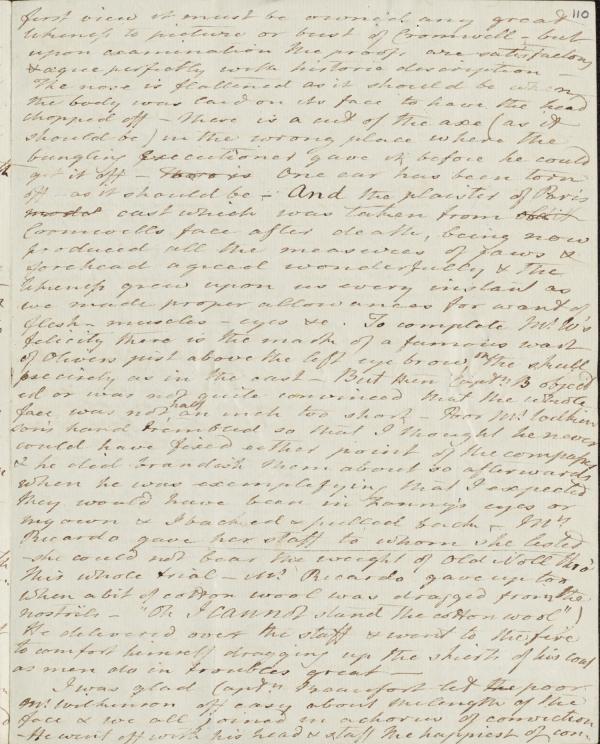 110
first view it must be owned any great
likeness to picture or bust of Cromwell – but
upon examination the proofs are satisfactory
& agree perfectly with historic description –
The nose is flattened as it should be when
the body was laid on its face to have the head
chopped off – There is a cut of the axe (as it
should be) in the wrong place where the
bungling Executioner gave it before he could
get it off – One ear has been torn
off – as it should be – And the plaister of Paris
cast which was taken from
Cromwells face after death, being now
produced all the measures of jaws &
forehead agreed wonderfully & the
likeness grew upon us every instant as
we made proper allowances for want of
flesh – muscles – eyes &c. To complete Mr. W's
felicity there is the mark of a famous wart
of Olivers just above the left eye brow in the skull
precisely as in the cast – But then Captn. B object
ed or was not quite convinced that the whole
face was not half an inch too short – Poor Mr. Wilkin
son's hand trembled so that I thought he never
could have fixed either point of the compasses
& he did brandish them about so afterwards
when he was exemplifying that I expected
they would have been in Fanny's eyes or
my own & I backed & pulled back – Mrs
Ricardo gave her staff to whom she listed
– she could not bear the weight of Old Noll thro'
this whole trial – Mr. Ricardo gave up too
when a bit of cotton wool was dragged from the
nostrils – "Oh I cannot stand the cotton wool")
He delivered over the staff & went to the fire
to comfort himself dragging up the skirts of his coat
as men do in troubles great –
I was glad Captn Beaufort let the poor
Mr. Wilkinson off easy about the length of the
face & we all joined in a chorus of conviction
– He went off with his head & staff the happiest of con-